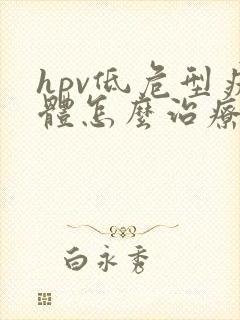 hpv低危型疒
體怎麼治療
白永秀